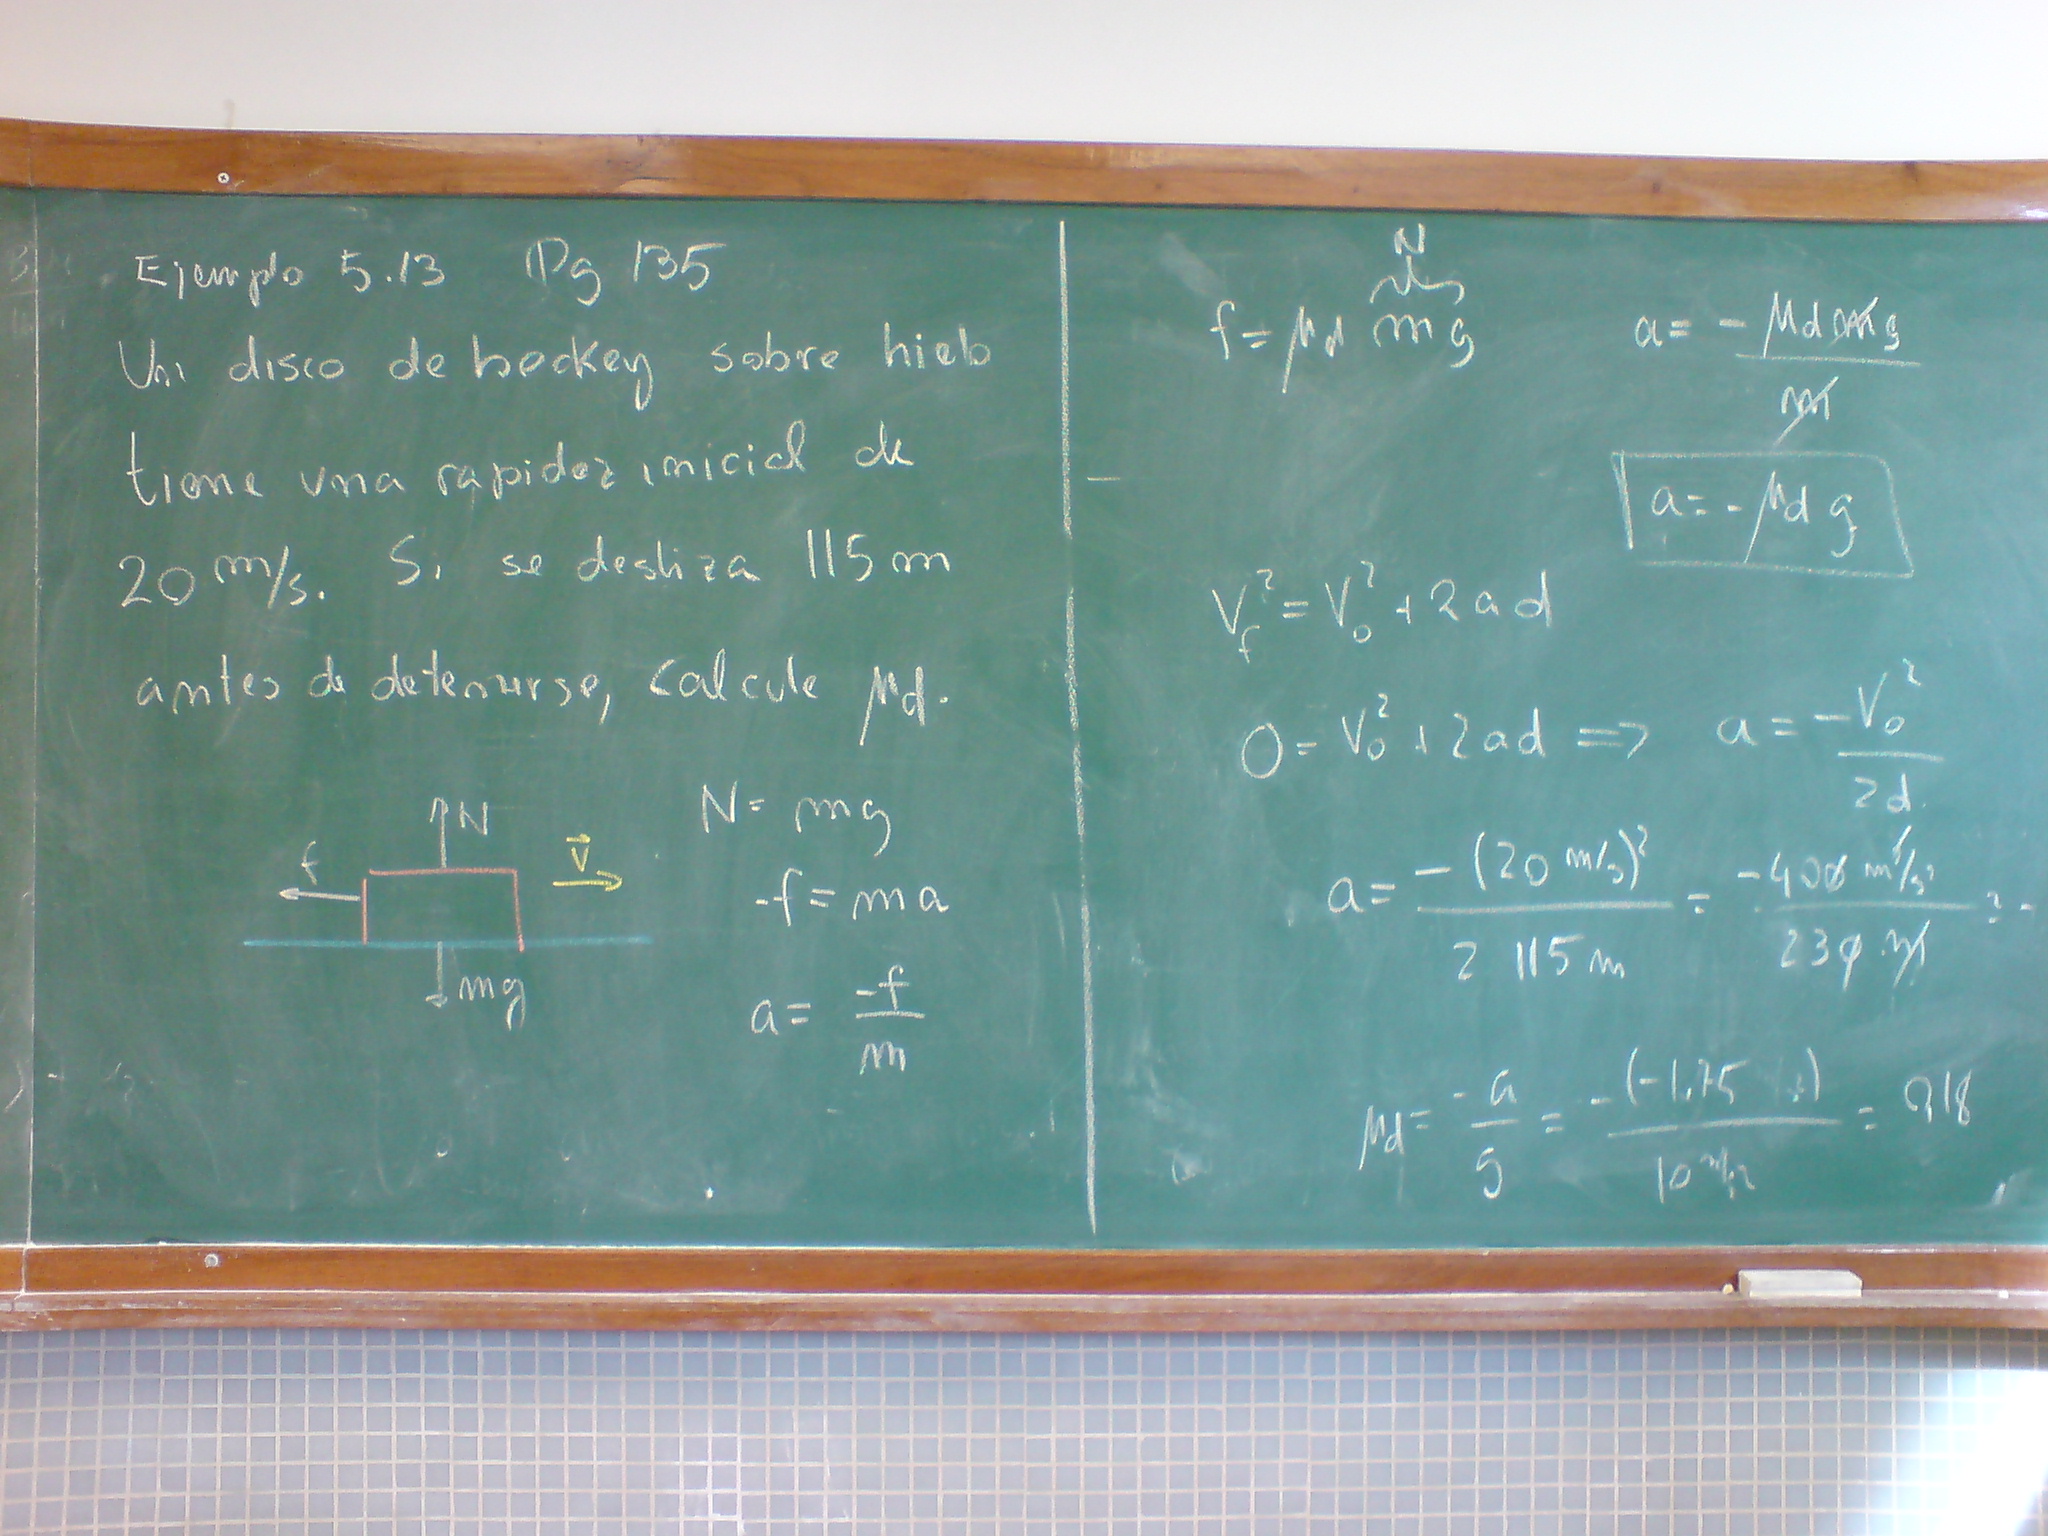 Ejemplo 5.13 Pg 135
Un disco de hockey sobre hielo
tiene una rapidez inicial de
20 m/s. Si se desliza 115 m
antes de detenerse, calcule μd.
N
f
v⃗
mg
N = mg
-f = ma
a = -f/m
N
f = μd mg
a = - μd mg / m
a = - μd g
Vf² = V0² + 2ad
0 = V0² + 2ad ⇒ a = -V0² / 2d
a = -(20 m/s)² / 2 115 m = -400 m²/s² / 230 m = -
μd = -a / g = -(-1.75) / 10 m/s² = 0,18